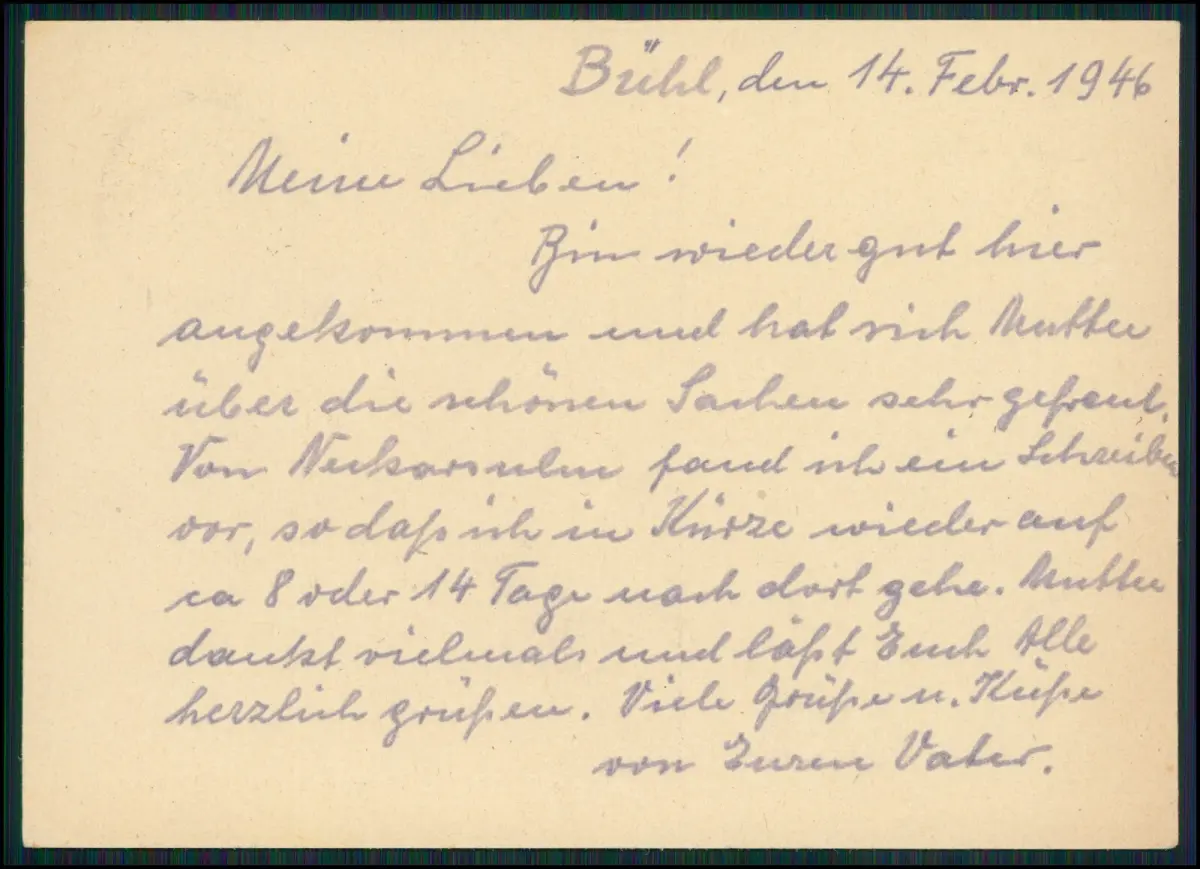 Bühl, den 14. Febr. 1946
Meine Lieben!
Bin wieder gut hier
angekommen und hat sich Mutter
über die schönen Sachen sehr gefreut.
Von Neckarsulm fand ich ein Schreiben
vor, so daß ich in Kürze wieder auf
ca 8 oder 14 Tage nach dort gehe. Mutter
dankt vielmals und läßt Euch Alle
herzlich grüßen. Viele Grüße u. Küße
von Eurem Vater.